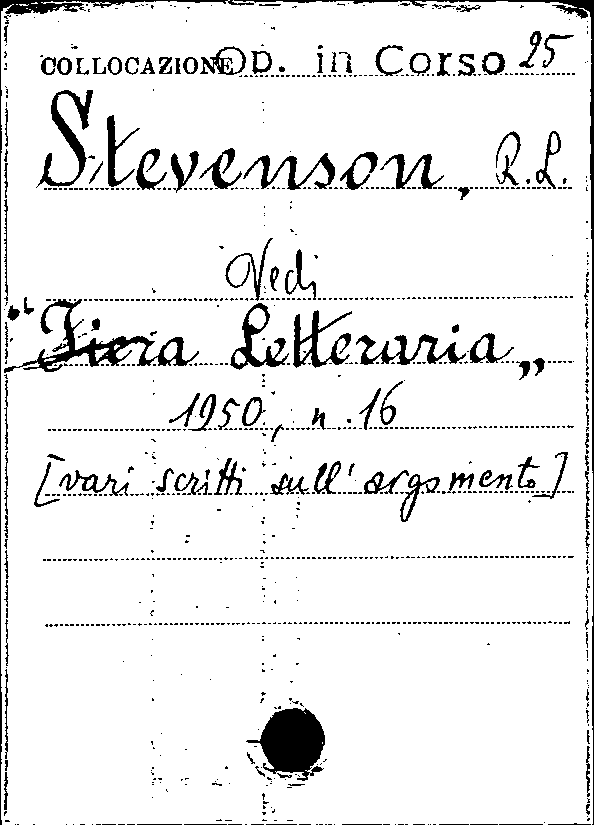 COLLOCAZIONE OD. in Corso 25
Stevenson, R.L.
Vedi
"Fiera Letteraria„
1950, n.16
[vari scritti sull'argomento]